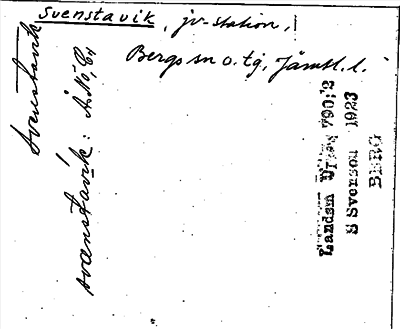 Svenstavik, jv-station,
Bergs sn o. tg, Jämtl. l.
Svenstavik
svænstavik: A. NO,
Landsm 790:2
S Svenson 1923
BERG